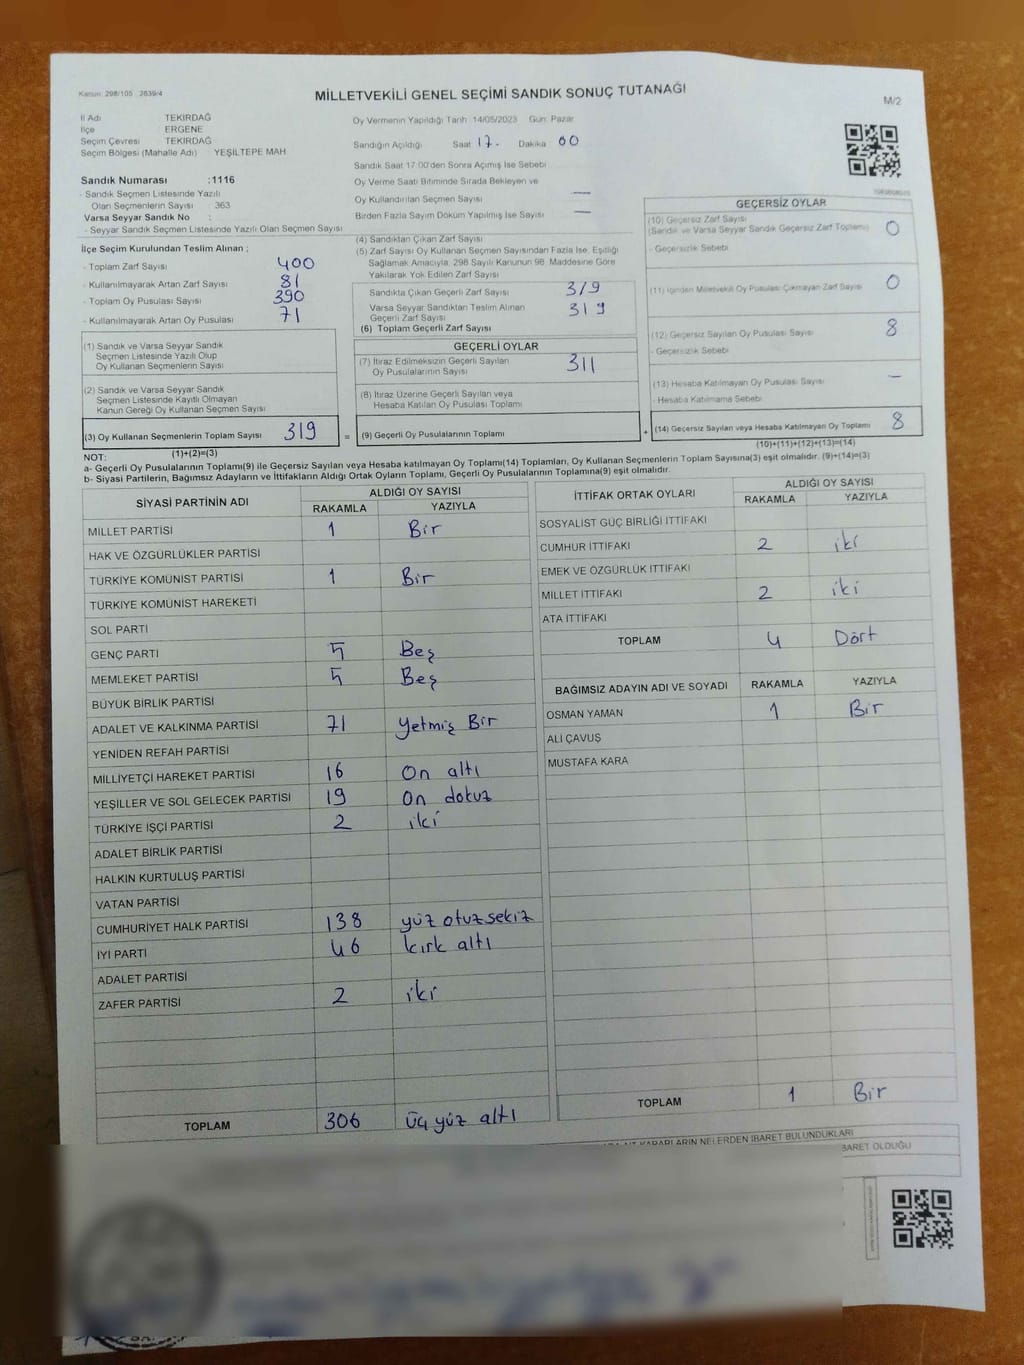 Kanun: 298/105 2839/4
MİLLETVEKİLİ GENEL SEÇİMİ SANDIK SONUÇ TUTANAĞI
M/2
İl Adı TEKİRDAĞ
İlçe ERGENE
Seçim Çevresi TEKİRDAĞ
Seçim Bölgesi (Mahalle Adı) : YEŞİLTEPE MAH
Sandık Numarası :1116
- Sandık Seçmen Listesinde Yazılı
Olan Seçmenlerin Sayısı : 363
Varsa Seyyar Sandık No :
- Seyyar Sandık Seçmen Listesinde Yazılı Olan Seçmen Sayısı
Oy Vermenin Yapıldığı Tarih 14/05/2023 Gün: Pazar
Sandığın Açıldığı Saat 17. Dakika 00
Sandık Saat 17:00'den Sonra Açımış İse Sebebi
Oy Verme Saati Bitiminde Sırada Bekleyen ve
Oy Kullandırılan Seçmen Sayısı —
Birden Fazla Sayım Döküm Yapılmış İse Sayısı —
İlçe Seçim Kurulundan Teslim Alınan ;
- Toplam Zarf Sayısı 400
- Kullanılmayarak Artan Zarf Sayısı 81
- Toplam Oy Pusulası Sayısı 390
- Kullanılmayarak Artan Oy Pusulası 71
(1) Sandık ve Varsa Seyyar Sandık
Seçmen Listesinde Yazılı Olup
Oy Kullanan Seçmenlerin Sayısı
(2) Sandık ve Varsa Seyyar Sandık
Seçmen Listesinde Kayıtlı Olmayan
Kanun Gereği Oy Kullanan Seçmen Sayısı
(3) Oy Kullanan Seçmenlerin Toplam Sayısı 319
(1)+(2)=(3)
(4) Sandıktan Çıkan Zarf Sayısı
(5) Zarf Sayısı Oy Kullanan Seçmen Sayısından Fazla İse, Eşitliği
Sağlamak Amacıyla, 298 Sayılı Kanunun 98. Maddesine Göre
Yakılarak Yok Edilen Zarf Sayısı
Sandıkta Çıkan Geçerli Zarf Sayısı 319
Varsa Seyyar Sandıktan Teslim Alınan
Geçerli Zarf Sayısı 319
(6) Toplam Geçerli Zarf Sayısı
GEÇERLİ OYLAR
(7) İtiraz Edilmeksizin Geçerli Sayılan
Oy Pusulalarının Sayısı 311
(8) İtiraz Üzerine Geçerli Sayılan veya
Hesaba Katılan Oy Pusulası Toplamı
= (9) Geçerli Oy Pusulalarının Toplamı
GEÇERSİZ OYLAR
(10) Geçersiz Zarf Sayısı
(Sandık ve Varsa Seyyar Sandık Geçersiz Zarf Toplamı) 0
- Geçersizlik Sebebi
(11) İçinden Milletvekili Oy Pusulası Çıkmayan Zarf Sayısı 0
(12) Geçersiz Sayılan Oy Pusulası Sayısı 8
- Geçersizlik Sebebi
(13) Hesaba Katılmayan Oy Pusulası Sayısı —
- Hesaba Katılmama Sebebi
+ (14) Geçersiz Sayılan veya Hesaba Katılmayan Oy Toplamı 8
(10)+(11)+(12)+(13)=(14)
NOT:
a- Geçerli Oy Pusulalarının Toplamı(9) ile Geçersiz Sayılan veya Hesaba katılmayan Oy Toplamı(14) Toplamları, Oy Kullanan Seçmenlerin Toplam Sayısına(3) eşit olmalıdır. (9)+(14)=(3)
b- Siyasi Partilerin, Bağımsız Adayların ve İttifakların Aldığı Ortak Oyların Toplamı, Geçerli Oy Pusulalarının Toplamına(9) eşit olmalıdır.
SİYASİ PARTİNİN ADI ALDIĞI OY SAYISI
RAKAMLA YAZIYLA
MİLLET PARTİSİ 1 Bir
HAK VE ÖZGÜRLÜKLER PARTİSİ
TÜRKİYE KOMÜNİST PARTİSİ 1 Bir
TÜRKİYE KOMÜNİST HAREKETİ
SOL PARTİ
GENÇ PARTİ 5 Beş
MEMLEKET PARTİSİ 5 Beş
BÜYÜK BİRLİK PARTİSİ
ADALET VE KALKINMA PARTİSİ 71 yetmiş Bir
YENİDEN REFAH PARTİSİ
MİLLİYETÇİ HAREKET PARTİSİ 16 On altı
YEŞİLLER VE SOL GELECEK PARTİSİ 19 On dokuz
TÜRKİYE İŞÇİ PARTİSİ 2 iki
ADALET BİRLİK PARTİSİ
HALKIN KURTULUŞ PARTİSİ
VATAN PARTİSİ
CUMHURİYET HALK PARTİSİ 138 yüz otuz sekiz
İYİ PARTİ 46 kırk altı
ADALET PARTİSİ
ZAFER PARTİSİ 2 iki
TOPLAM 306 üç yüz altı
İTTİFAK ORTAK OYLARI ALDIĞI OY SAYISI
RAKAMLA YAZIYLA
SOSYALİST GÜÇ BİRLİĞİ İTTİFAKI
CUMHUR İTTİFAKI 2 iki
EMEK VE ÖZGÜRLÜK İTTİFAKI
MİLLET İTTİFAKI 2 iki
ATA İTTİFAKI
TOPLAM 4 Dört
BAĞIMSIZ ADAYIN ADI VE SOYADI RAKAMLA YAZIYLA
OSMAN YAMAN 1 Bir
ALİ ÇAVUŞ
MUSTAFA KARA
TOPLAM 1 Bir
KARARLARIN NELERDEN İBARET BULUNDUKLARI
İBARET OLDUĞU